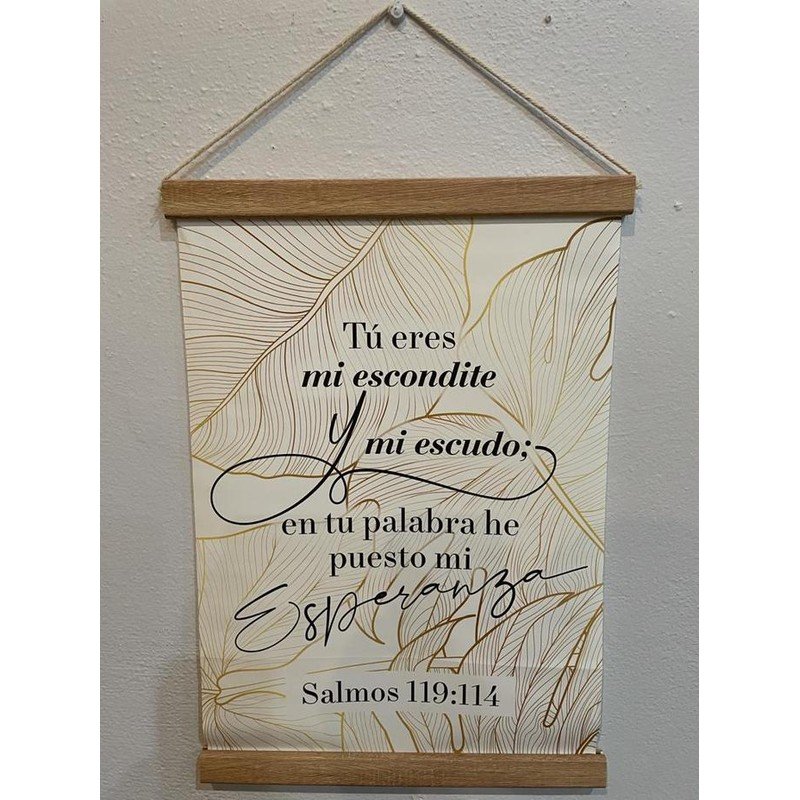 Tú eres
mi escondite
y mi escudo;
en tu palabra he
puesto mi
Esperanza
Salmos 119:114